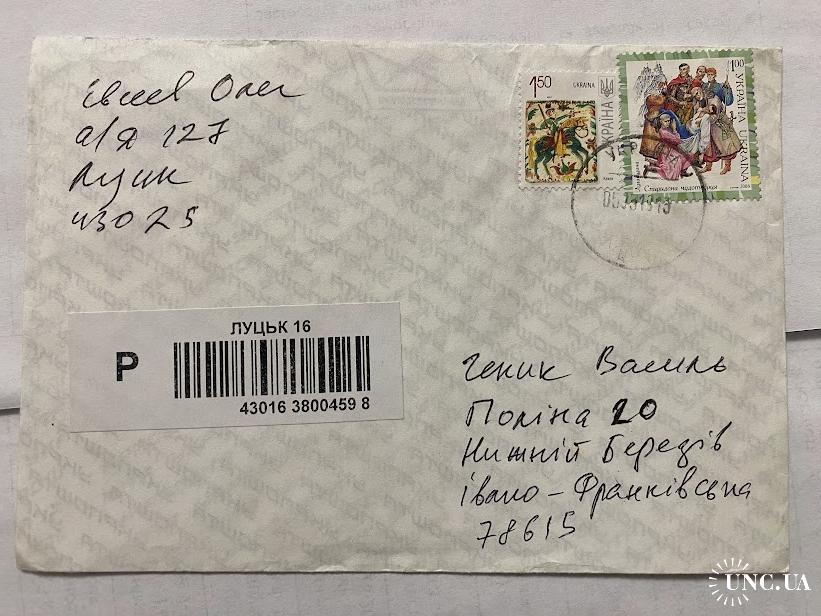 івчев Олег
а/я 127
Луцк
43025
1.50
UKRAINA
УКРАЇНА
1.00
УКРАЇНА UKRAINA
2008
ЛУЦЬК 16
Р
43016 3800459 8
Геник Василь
Поліна 20
Нижній Березів
івано-Франківська
78615
UNC.UA